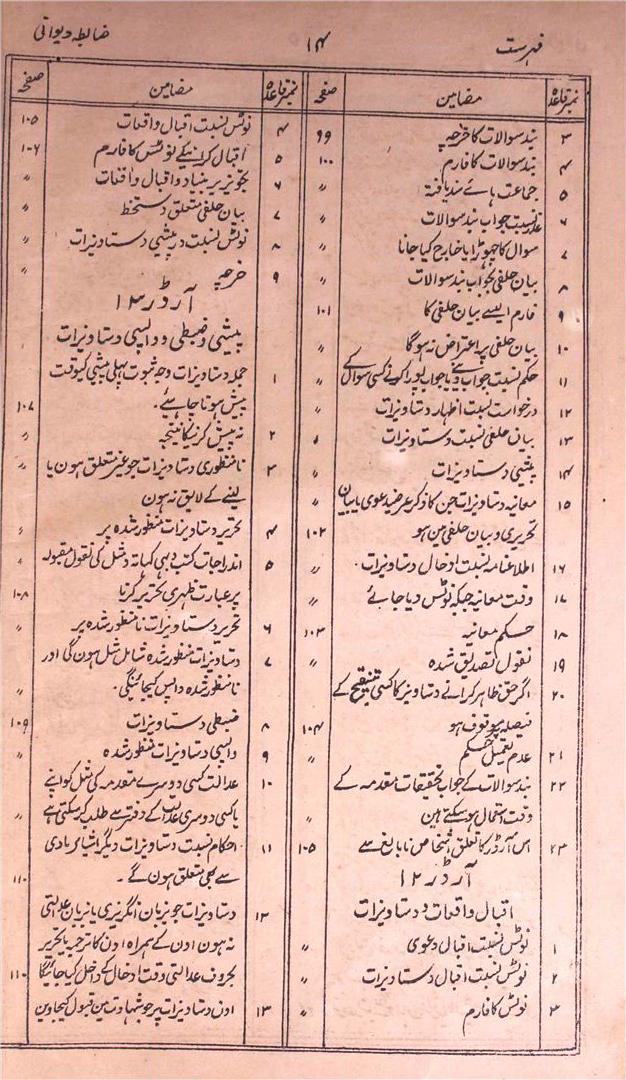 فہرست ۱۴ ضابطہ دیوانی
نمبر قاعدہ مضامین صفحہ
۳ بند سوالات کا خرچہ ۹۹
۴ بند سوالات کا فارم ۱۰۰
۵ جماعت ہائے سند یافتہ 〃
۶ عذر نسبت جواب بند سوالات 〃
۷ سوال کا چھوڑا یا خارج کیا جانا 〃
۸ بیان حلفی بجواب بند سوالات 〃
۹ فارم ایسے بیان حلفی کا ۱۰۱
۱۰ بیان حلفی پر اعتراض نہ ہوگا 〃
۱۱ حکم نسبت جواب دینے یا جواب پورا کرنے کسی سوال کے 〃
۱۲ درخواست نسبت اظہار دستاویزات 〃
۱۳ بیان حلفی نسبت دستاویزات 〃
۱۴ پیشی دستاویزات 〃
۱۵ معائنہ دستاویزات جن کا ذکر عرضیدعوی یا بیان 〃
تحریری و بیان حلفی مین ہو ۱۰۲
۱۶ اطلاعنامہ نسبت ادخال دستاویزات 〃
۱۷ وقت معائنہ جبکہ نوٹس دیا جائے 〃
۱۸ حکم معائنہ ۱۰۳
۱۹ نقول تصدیق شدہ 〃
۲۰ اگر حق ظاہر کرانے دستاویز کا کسی تنقیح کے
فیصلہ پر موقوف ہو ۱۰۴
۲۱ عدم تعمیل حکم 〃
۲۲ بند سوالات کے جواب تحقیقات مقدمہ کے
وقت استعمال ہو سکتے ہین 〃
۲۳ اس آرڈر کا تعلق اشخاص نابالغ سے ۱۰۵
آرڈر ۱۲
اقبال واقعات و دستاویزات
۱ نوٹس نسبت اقبال دعوی 〃
۲ نوٹس نسبت اقبال دستاویزات 〃
۳ نوٹس کا فارم 〃
نمبر قاعدہ مضامین صفحہ
۴ نوٹس نسبت اقبال واقعات ۱۰۵
۵ اقبال کرانیکے نوٹس کا فارم ۱۰۶
۶ تجویز بر بنیاد اقبال واقعات 〃
۷ بیان حلفی متعلق دستخط 〃
۸ نوٹس نسبت درپیشی دستاویزات 〃
۹ خرچہ
آرڈر ۱۳
پیشی و ضبطی و واپسی دستاویزات
۱ جملہ دستاویزات وجہ ثبوت پہلی پیشی کیوقت
پیش ہونا چاہئے۔ ۱۰۷
۲ نہ پیش کرنیکا نتیجہ 〃
۳ نا منظوری دستاویزات جو غیر متعلق ہون یا 〃
لینے کے لایق نہ ہون
۴ تحریر دستاویزات منظور شدہ پر 〃
۵ اندراجات کتب وہی کہاتہ و مثل کی نقول مقبولہ 〃
پر عبارت ظہری تحریر کرنا ۱۰۸
۶ تحریر دستاویزات نا منظور شدہ پر 〃
۷ دستاویزات منظور شدہ شامل مثل ہون گی اور
نامنظور شدہ واپس کیجائینگی۔ 〃
۸ ضبطی دستاویزات ۱۰۹
۹ واپسی دستاویزات منظور شدہ 〃
۱۰ عدالت کسی دوسرے مقدمہ کی مثل کو اپنے
یا کسی دوسری عدالت کے دفتر سے طلب کر سکتی ہے 〃
۱۱ احکام نسبت دستاویزات دیگر اشیائے مادی
سے بھی متعلق ہون گے۔ ۱۱۰
۱۲ دستاویزات جو بزبان انگریزی یا زبان عدالتی
نہ ہون اون کے ہمراہ اون کا ترجمہ یا تحریر
بحروف عدالتی وقت ادخال کے داخل کیا جائیگا ۱۱۰
۱۳ اون دستاویزات پر جو شہادت مین قبول کیجاوین